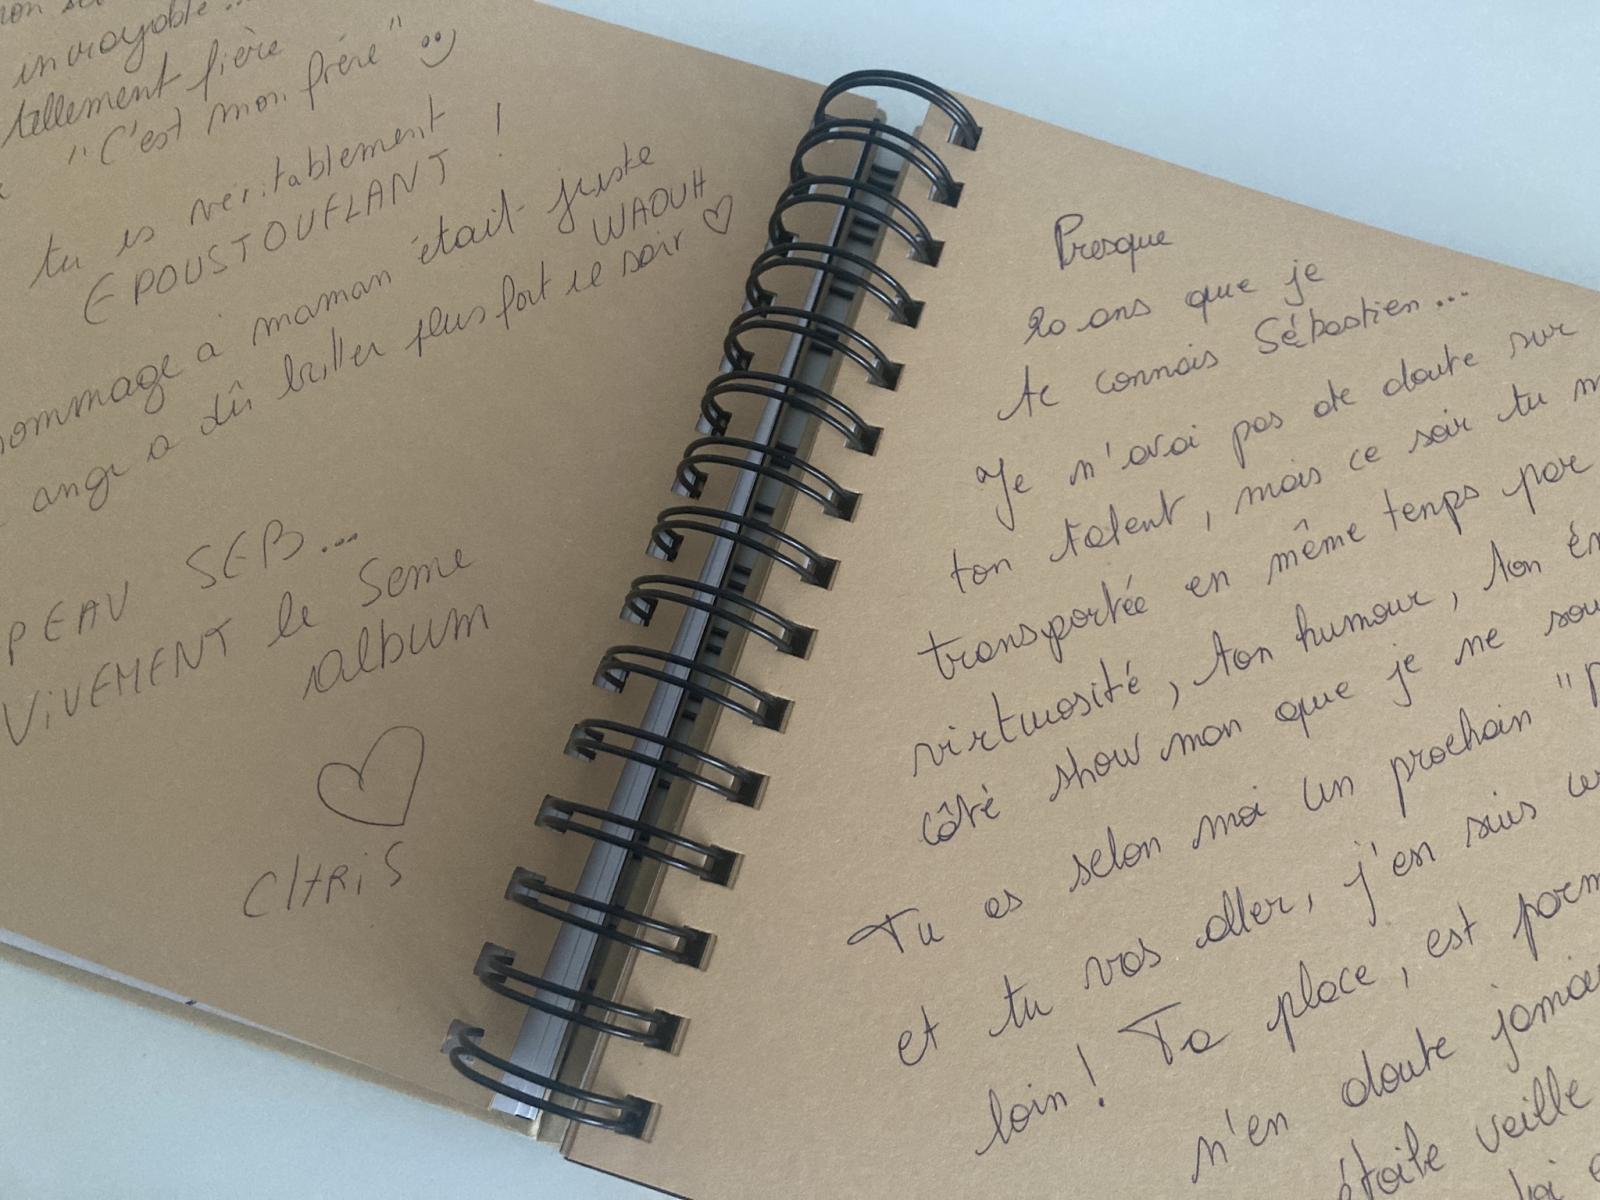 incroyable...
tellement fière
"C'est mon frère"
tu es véritablement
EPOUSTOUFLANT !
hommage à maman était juste
WAOUH
ange a dû briller plus fort ce soir ♡
PEAU SEB...
ViVEMENT le 5eme
album
♡
CHRiS
Presque
20 ans que je
te connais Sébastien...
Je n'avai pas de doute sur
ton talent, mais ce soir tu m
transportée en même temps par
virtuosité, ton humour, ton ém
côté show man que je ne sou
Tu es selon moi un prochain "
et tu vas aller, j'en suis
loin ! Ta place, est parm
n'en doute jamai
étoile veille